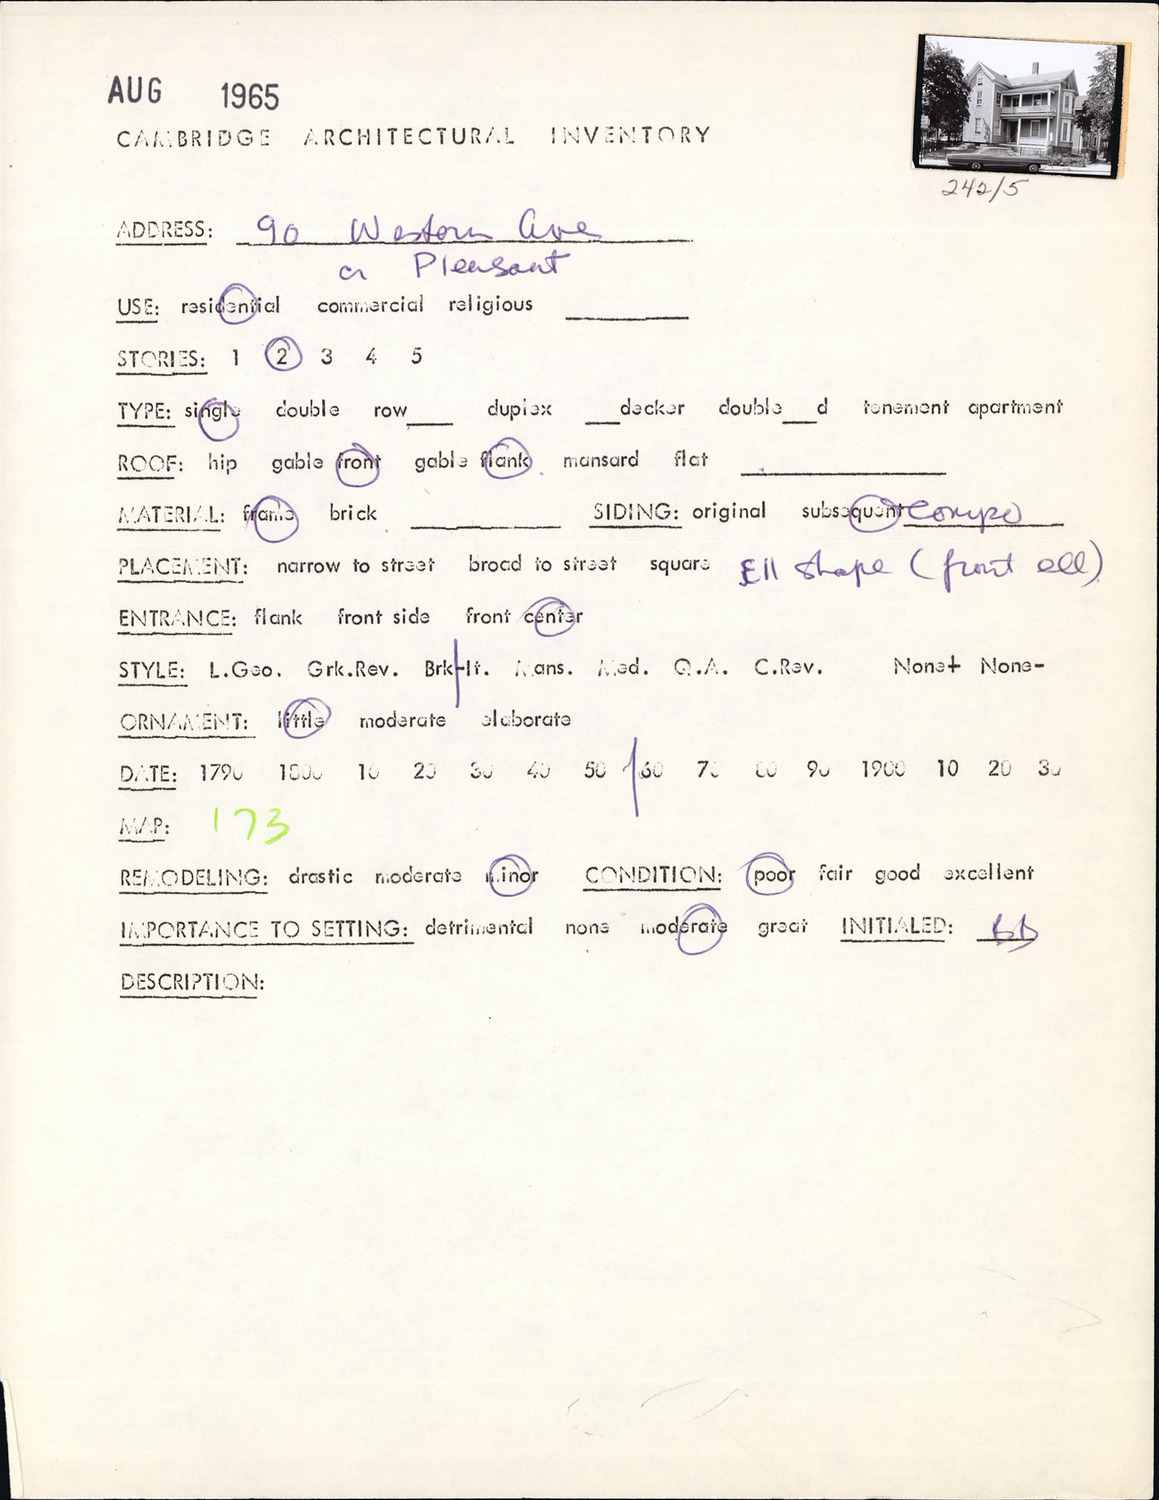 AUG 1965
CAMBRIDGE ARCHITECTURAL INVENTORY
242/5
ADDRESS: 90 Western Ave
cr Pleasant
USE: residential commercial religious
STORIES: 1 2 3 4 5
TYPE: single double row___ duplex ___decker double___d tenement apartment
ROOF: hip gable front gable flank mansard flat
MATERIAL: frame brick ___ SIDING: original subsequent compo
PLACEMENT: narrow to street broad to street square Ell shape (front ell)
ENTRANCE: flank front side front center
STYLE: L.Geo. Grk.Rev. Brk-It. Mans. Med. Q.A. C.Rev. None+ None-
ORNAMENT: little moderate elaborate
DATE: 1790 1800 10 20 30 40 50 60 70 80 90 1900 10 20 30
MAP: 173
REMODELING: drastic moderate minor CONDITION: poor fair good excellent
IMPORTANCE TO SETTING: detrimental none moderate great INITIALED: BD
DESCRIPTION: